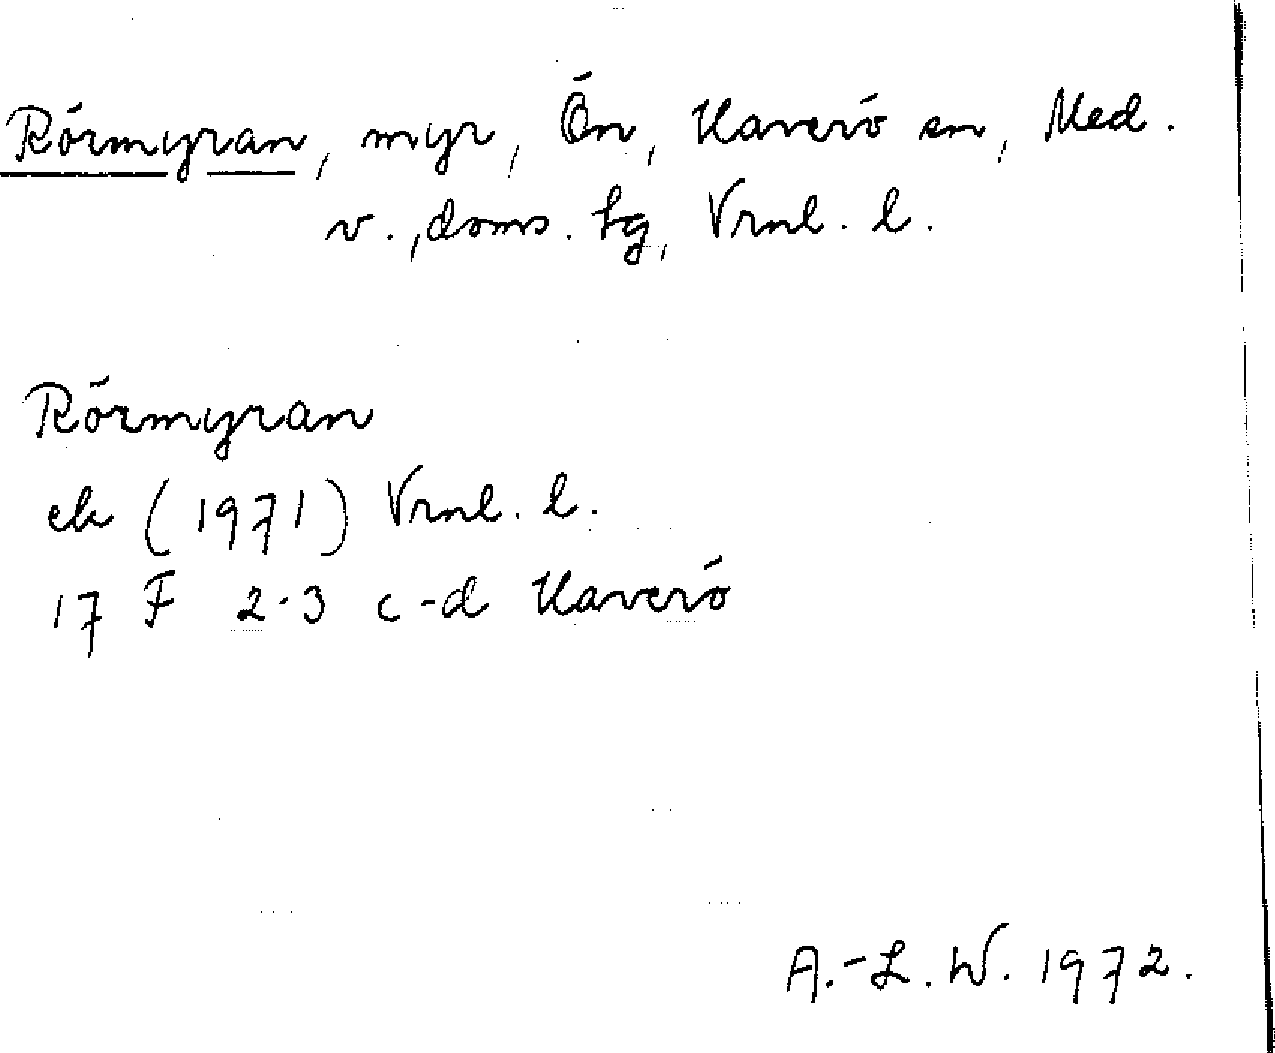 Rörmyran, myr, Ön, Haverö sn, Med.
v., doms. tg, Vrnl. l.
Rörmyran
ek (1971) Vrnl. l.
17 F 2-3 c-d Haverö
A.-L. W. 1972.